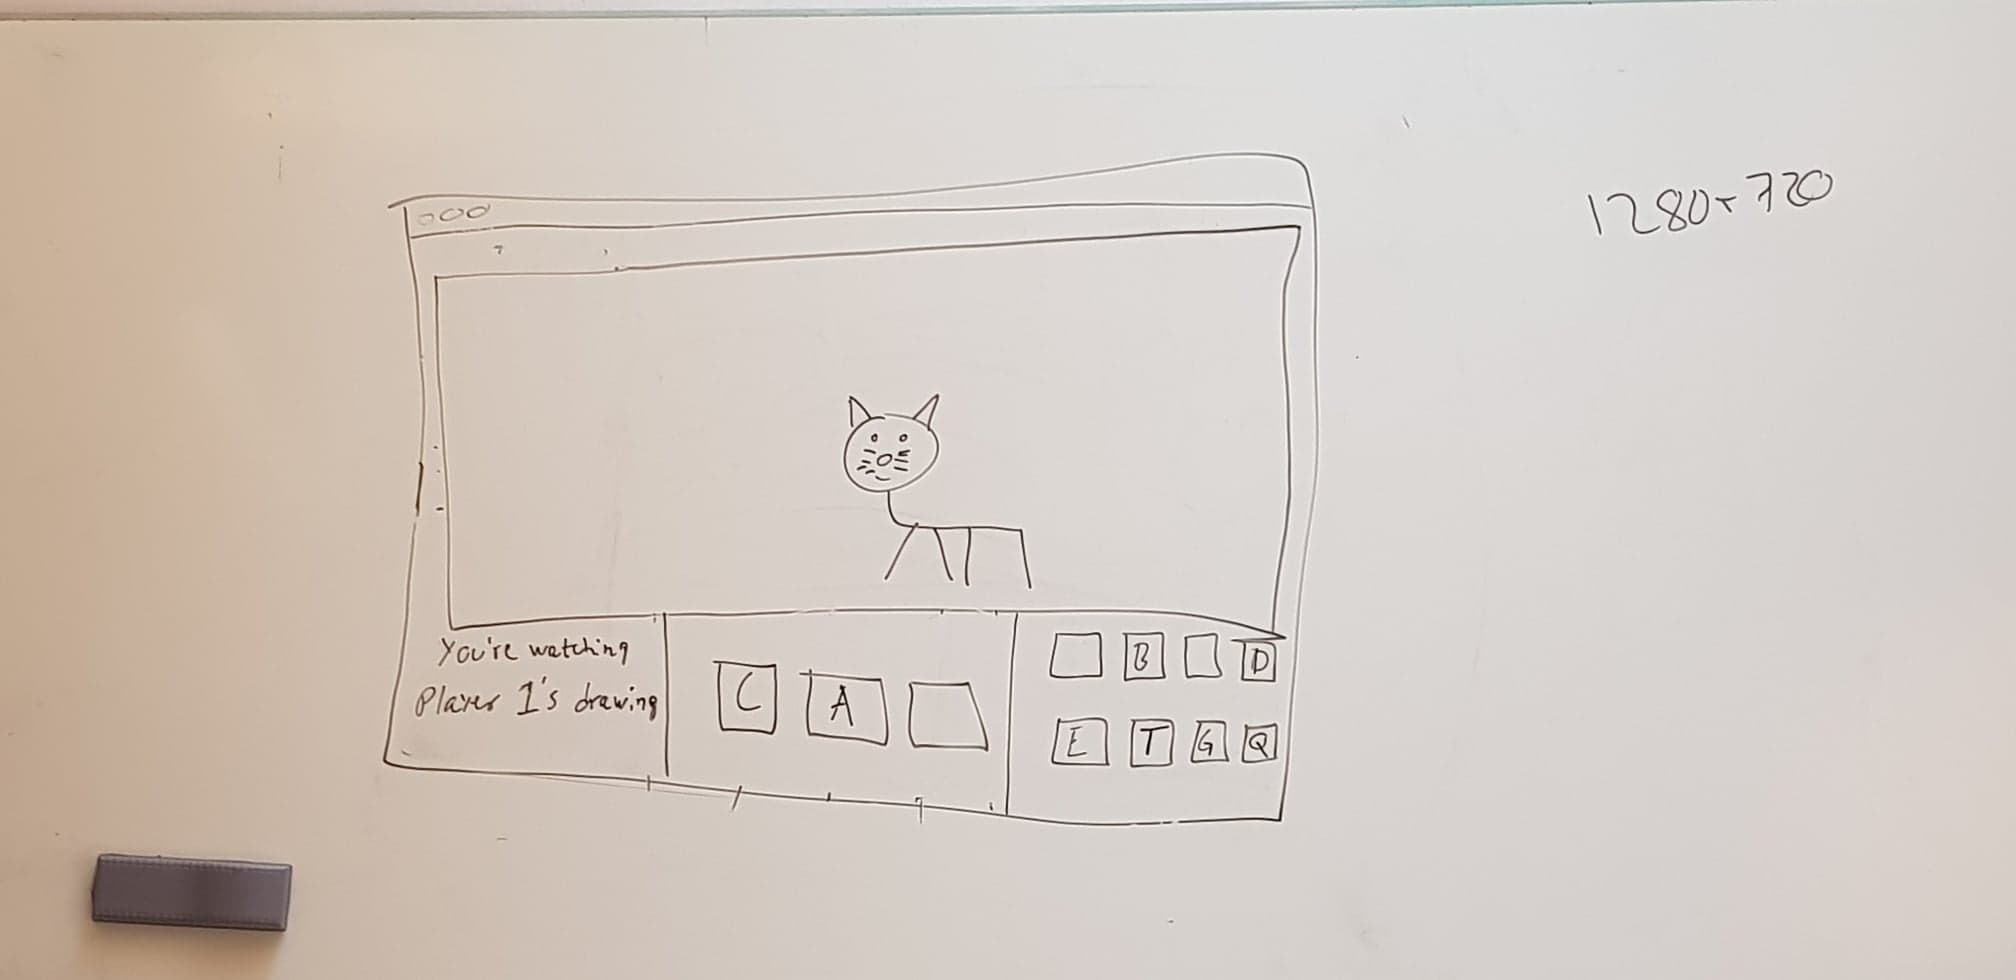 1280x720
You're watching
Player 1's drawing
C A
B D
E T G Q